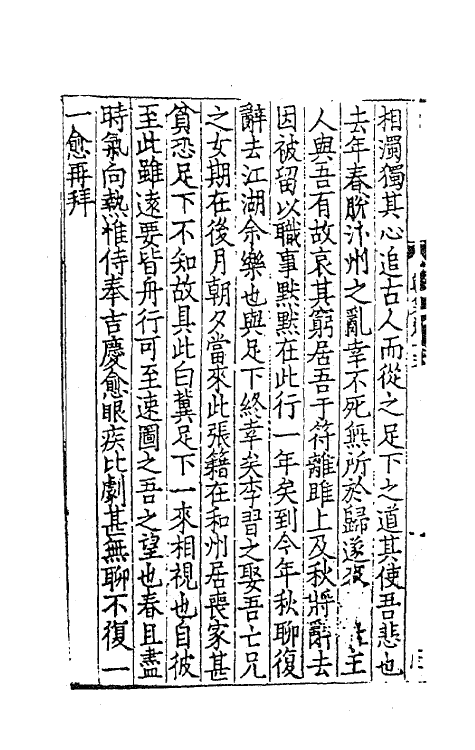 相濁獨其心追古人而從之足下之道其使吾悲也
去年春脫汴州之亂幸不死無所於歸遂來主
人與吾有故哀其窮居吾于符離睢上及秋將辭去
因被留以職事默默在此行一年矣到今年秋聊復
辭去江湖余樂也與足下終幸矣李習之娶吾亡兄
之女期在後月朝夕當來此張籍在和州居喪家甚
貧恐足下不知故具此白冀足下一來相視也自彼
至此雖遠要皆舟行可至速圖之吾之望也春且盡
時氣向熱惟侍奉吉慶愈眼疾比劇甚無聊不復一
一愈再拜